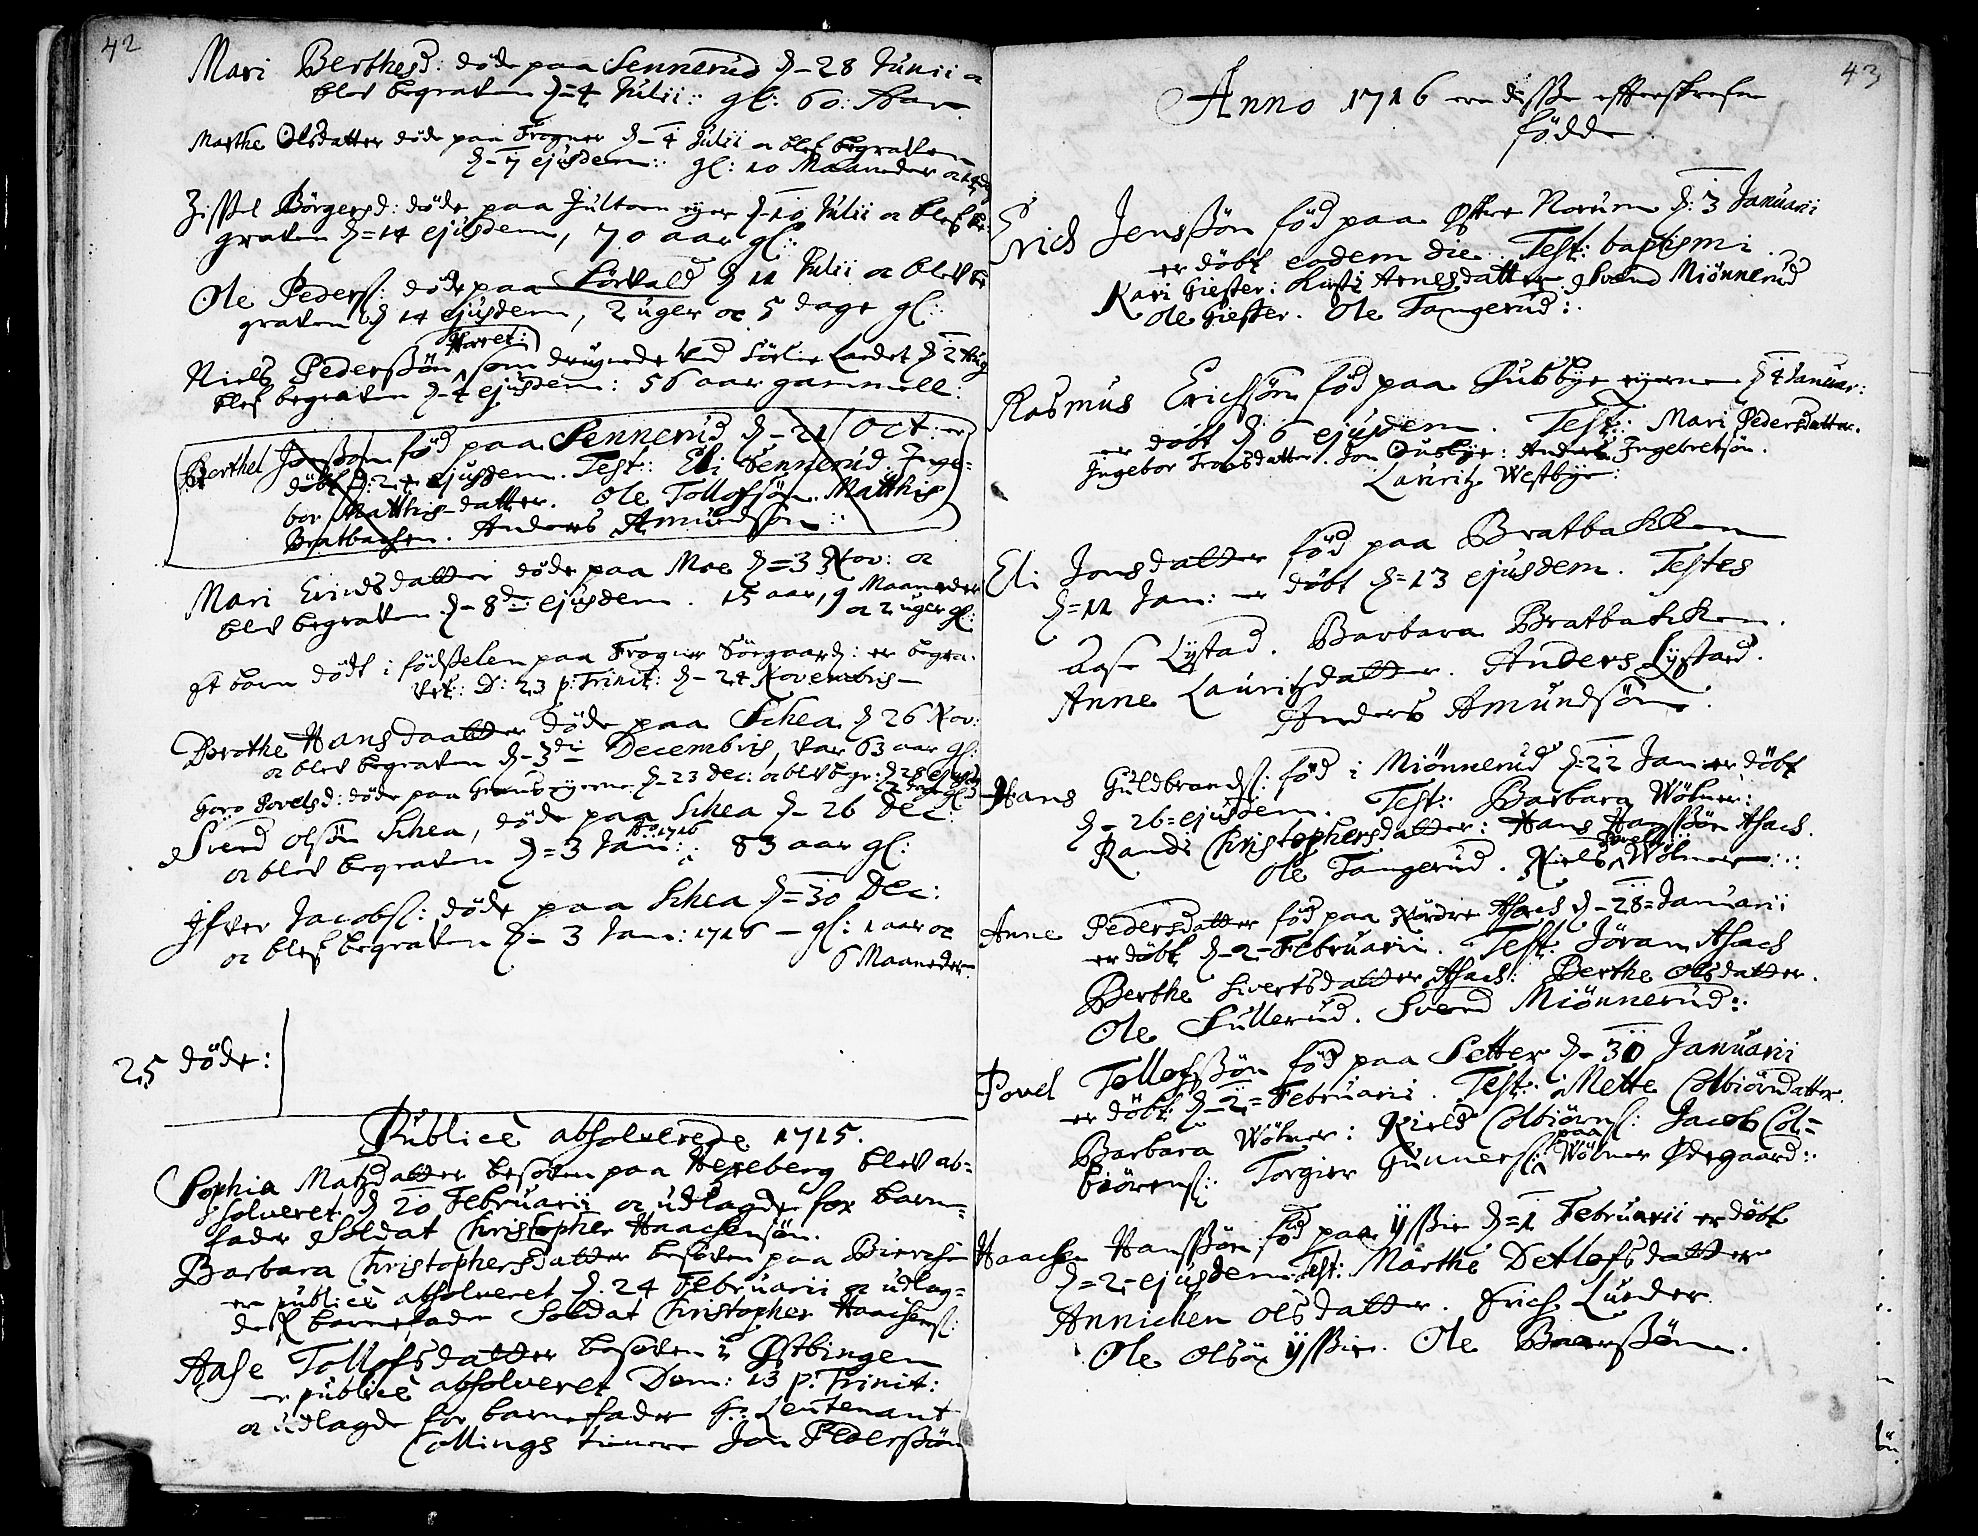 42
Mari Berthesd: døde paa Sennerud d– 28 Junii oc
blev begraven d=4 Julii:: gl: 60: Aar
Marthe Olsdatter døde paa Frogner d– 4 Julii oc blef begraven
d– 7 ejusdem:: gl: 10 Maaneder oc
Zissel Börgersd: døde paa Jultom eyer d– 10 Julii oc blef be-
graven d=14 ejusdem, 70 aar gl::
Ole Peders: døde paa Sörvald d 11 Julii oc blev be
graven d 14 ejusdem, 2 uger oc 5 dage gl::
Niels Pederssön som drugnede ved Sörlie Landet d 2 Aug
blef begraven d– 4 ejusdem: 56 aar gammell:
Berthel Jonsson fød paa Sennerud d– 21 Oct: er
döbt d: 24 ejusdem. Test:: Eli Sennerud. Inge-
bor Matthis-datter. Ole Tollofsön. Matthis
Bratbachen. Anders Amundson::
Mari Erichsdatter døde paa Moe d=3 Nov: oc
blev begraven d– 8de ejusdem. 15 aar, 9 Maaneder
oc 2 uger gl:
Et barn dødt i fødsselen paa Frogner Sörgaard: er begra-
vet:: D: 23 p: Trinit: d– 24 Novembris–
Dorothe Hansdaatter døde paa Schea d 26 Nov:
oc blev begraven d– 3di Decembris, var 63 aar gl:
Goro Povelsd: døde paa eyerne d– 23 Dec: oc blev begr: d 28 ejusd
Svend Olsön Schea, døde paa Schea d– 26 Dec:
oc blev begraven d=3 Jan: Ao 1716: 83 aar gl:
Ifver Jacobs: døde paa Schea d=30 Dec:
oc blef begraven d– 3 Jan: 1716 – gl: 1 aar oc
6 Maaneder
25 døde:
Publicè absolverede 1715.
Sophia Matzdatter besoven paa Hexeberg blev ab=
solveret d 20 Februarii oc udlagde for barn=
fader Soldat Christopher Haachensön.
Barbara Christophersdatter besoven paa Bierche
er publicè absolveret d. 24 Februarii oc udlag=
de barnefader Soldat Christopher Haachens:
Aase Tollofsdatter besoven i Østbingen
er publicè absolveret Dom: 13 p: Trinit:
oc udlagde for barnefader Hr: Leutenant
Collings tienere Jon Pederssön
43
Anno 1716 ere disse effterskrefne
fødde
Erich Jenssön fød paa Østre Norum d: 3 Januarii
er döbt eodem die. Test: baptismi
Kari Giester: Kirsti Arnesdatter. Svend Miönnerud
Ole Giester. Ole Tangerud:
Rasmus Erichsön fød paa Dusbye eyerne d 4 Januar:
er döbt d 6 ejusdem. Test:: Mari Pedersdatter.
Ingebor Troesdatter. Jon Dusbye: Anders Ingebretsön.
Lauritz Westbye:
Eli Jonsdatter fød paa Bratbakken
d=11 Jan: er döbt d=13 ejusdem. Testes
Aase Lystad. Barbara Bratbakken.
Anne Lauritzdatter. Anders Lystad.
Anders Amundsön.
Hans Guldbrands: fød i Miönnerud d=22 Jan: er döbt
d– 26=ejusdem. Test: Barbara Wölner:
Randi Christophersdatter: Hans Hanssön Asach.
Ole Tangerud. Niels Wölner::
Anne Pedersdatter fød paa Nordre Asach d– 28=Januarii
er döbt d– 2– Februarii. Test: Jöran Asach
Berthe Sivertsdatter Asach: Berthe Olsdatter.
Ole Sullerud. Svend Miönnerud::
Povel Tollofssön fød paa Setter d– 30 Januarii
er döbt d– 2= Februarii. Test: Mette Colbiörnsdatter
Barbara Wölner: Niels Colbiörns: Jacob Col=
biörens:: Torgier Gunners: paa Wölner Ødegaard::
Haachen Hanssön fød paa Ijssie d=1 Februarii er döbt
d=2– ejusdem. Test: Marthe Detlofsdatter
Annichen Olsdatter. Erich Lunder
Ole Olsön Ijssie. Ole Baarssön.